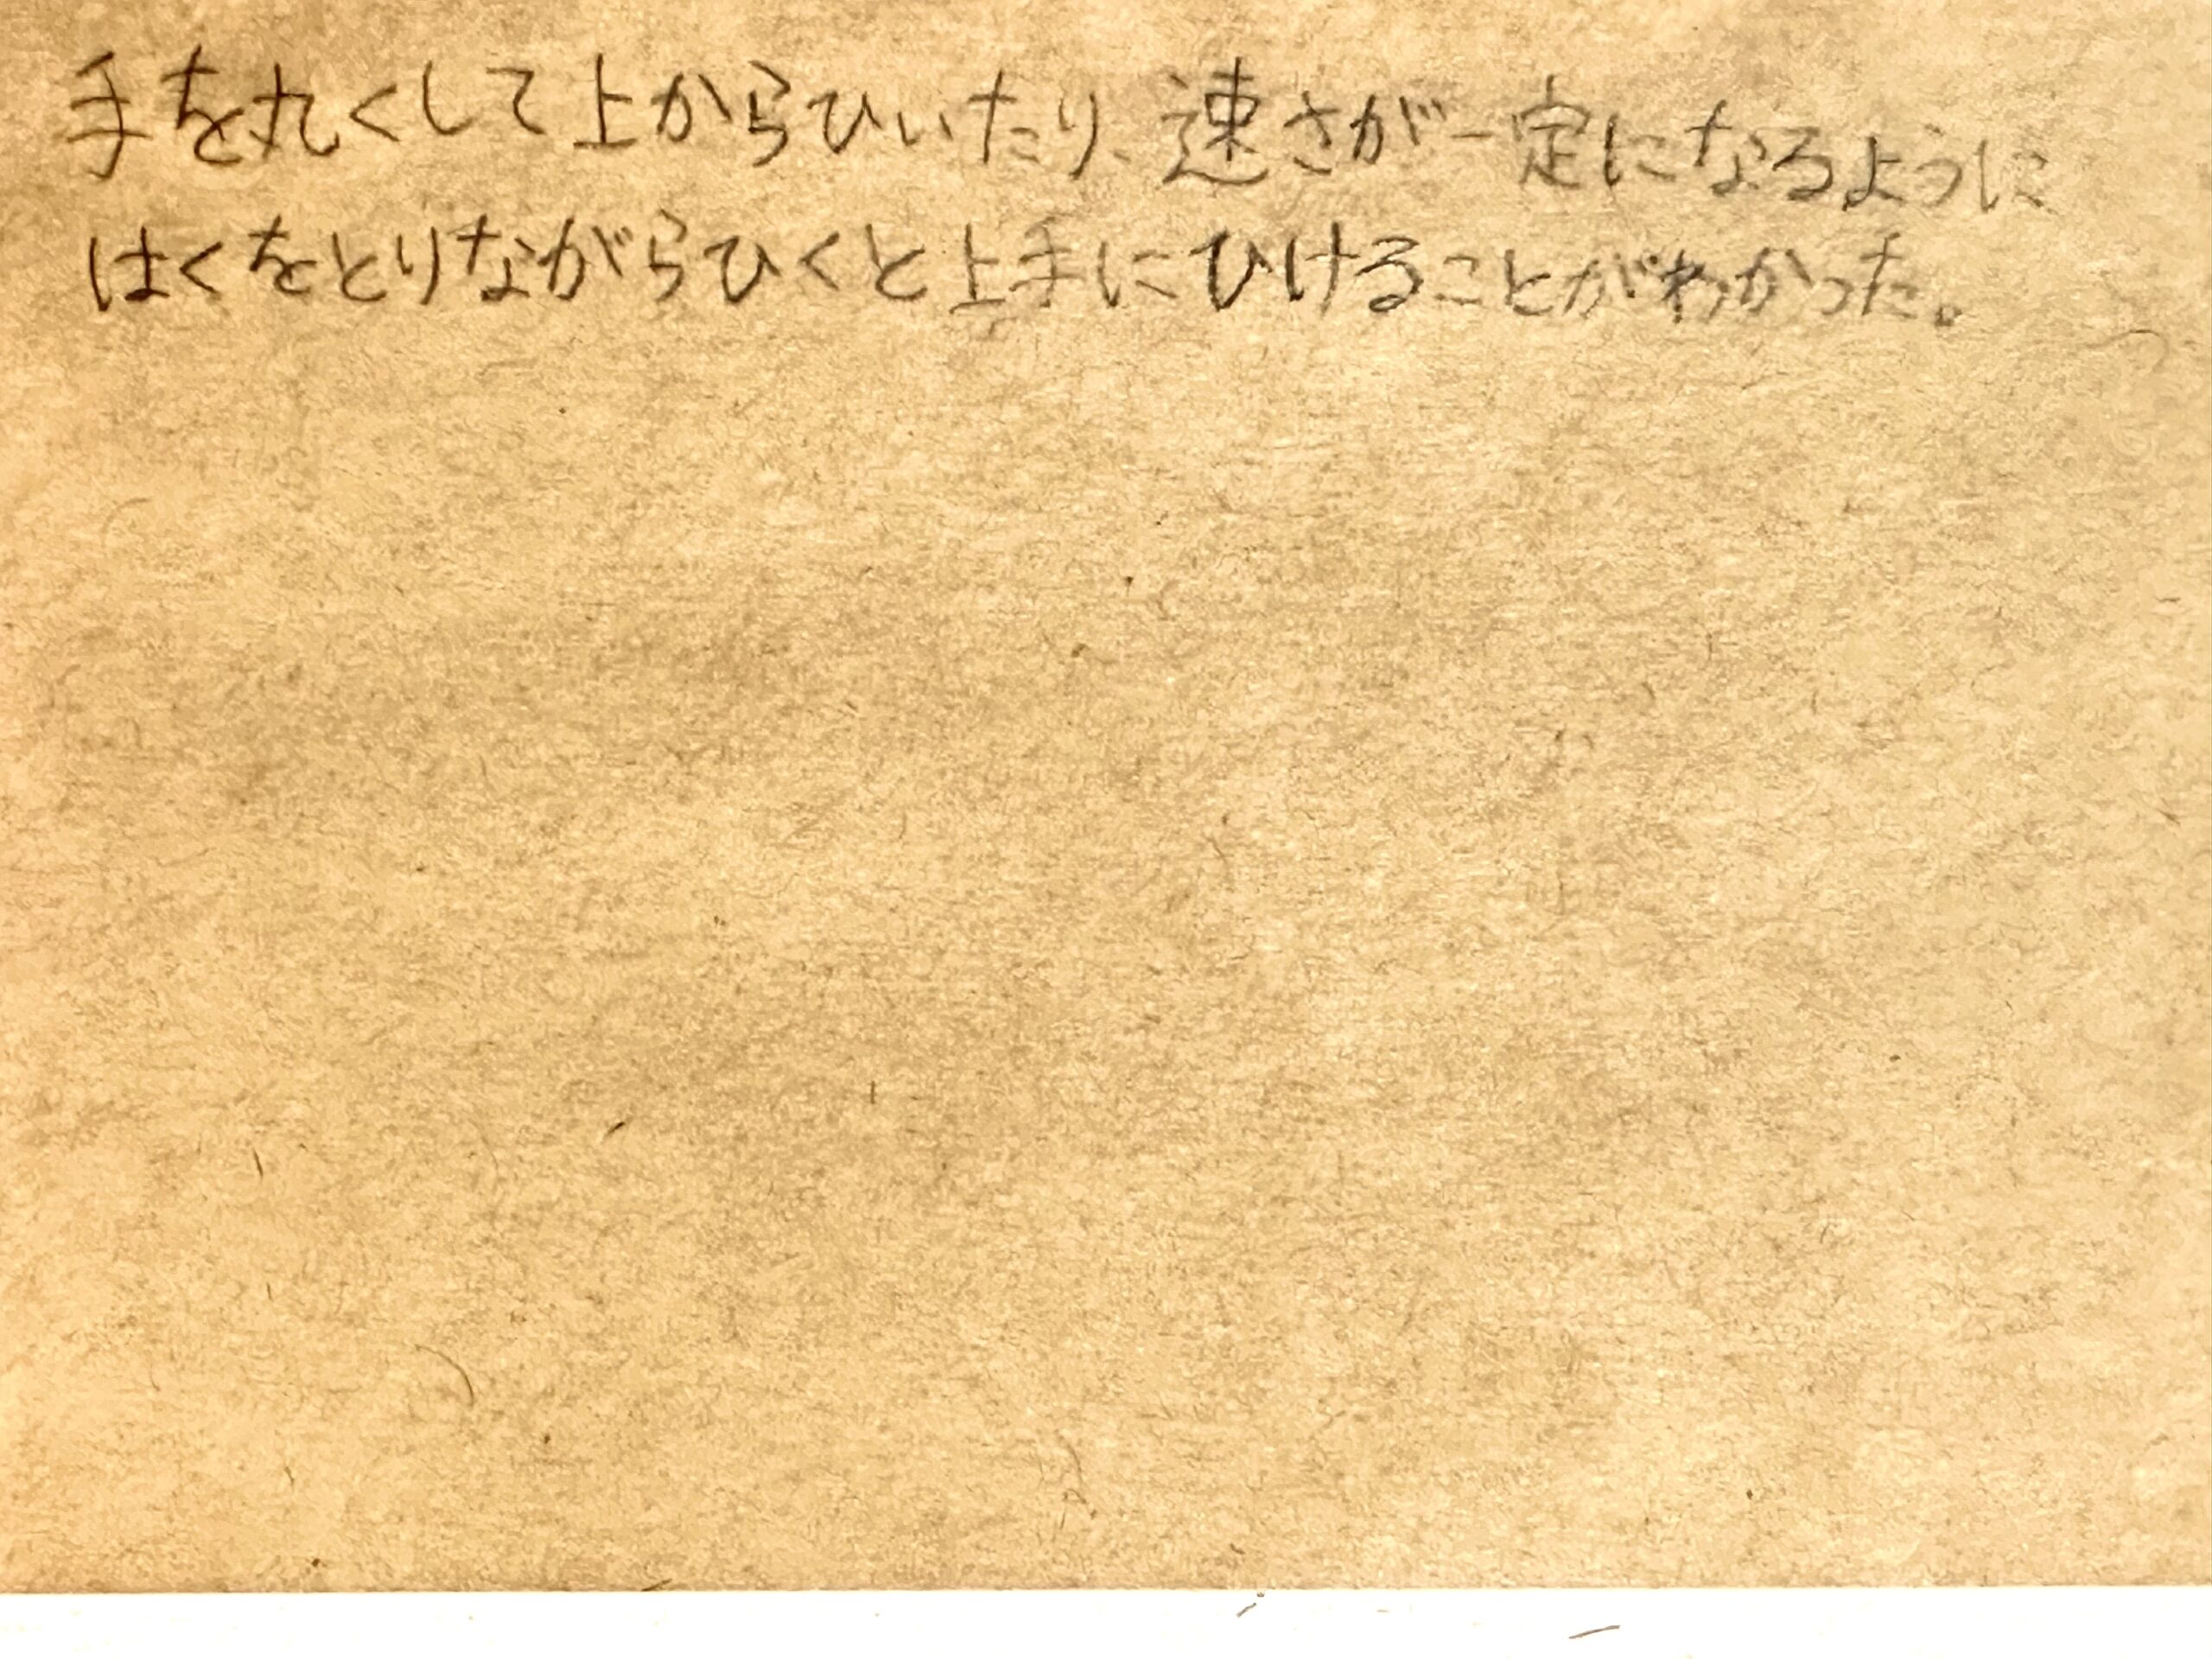 手を丸くして上からひいたり、速さが一定になるように
はくをとりながらひくと上手にひけることがわかった。